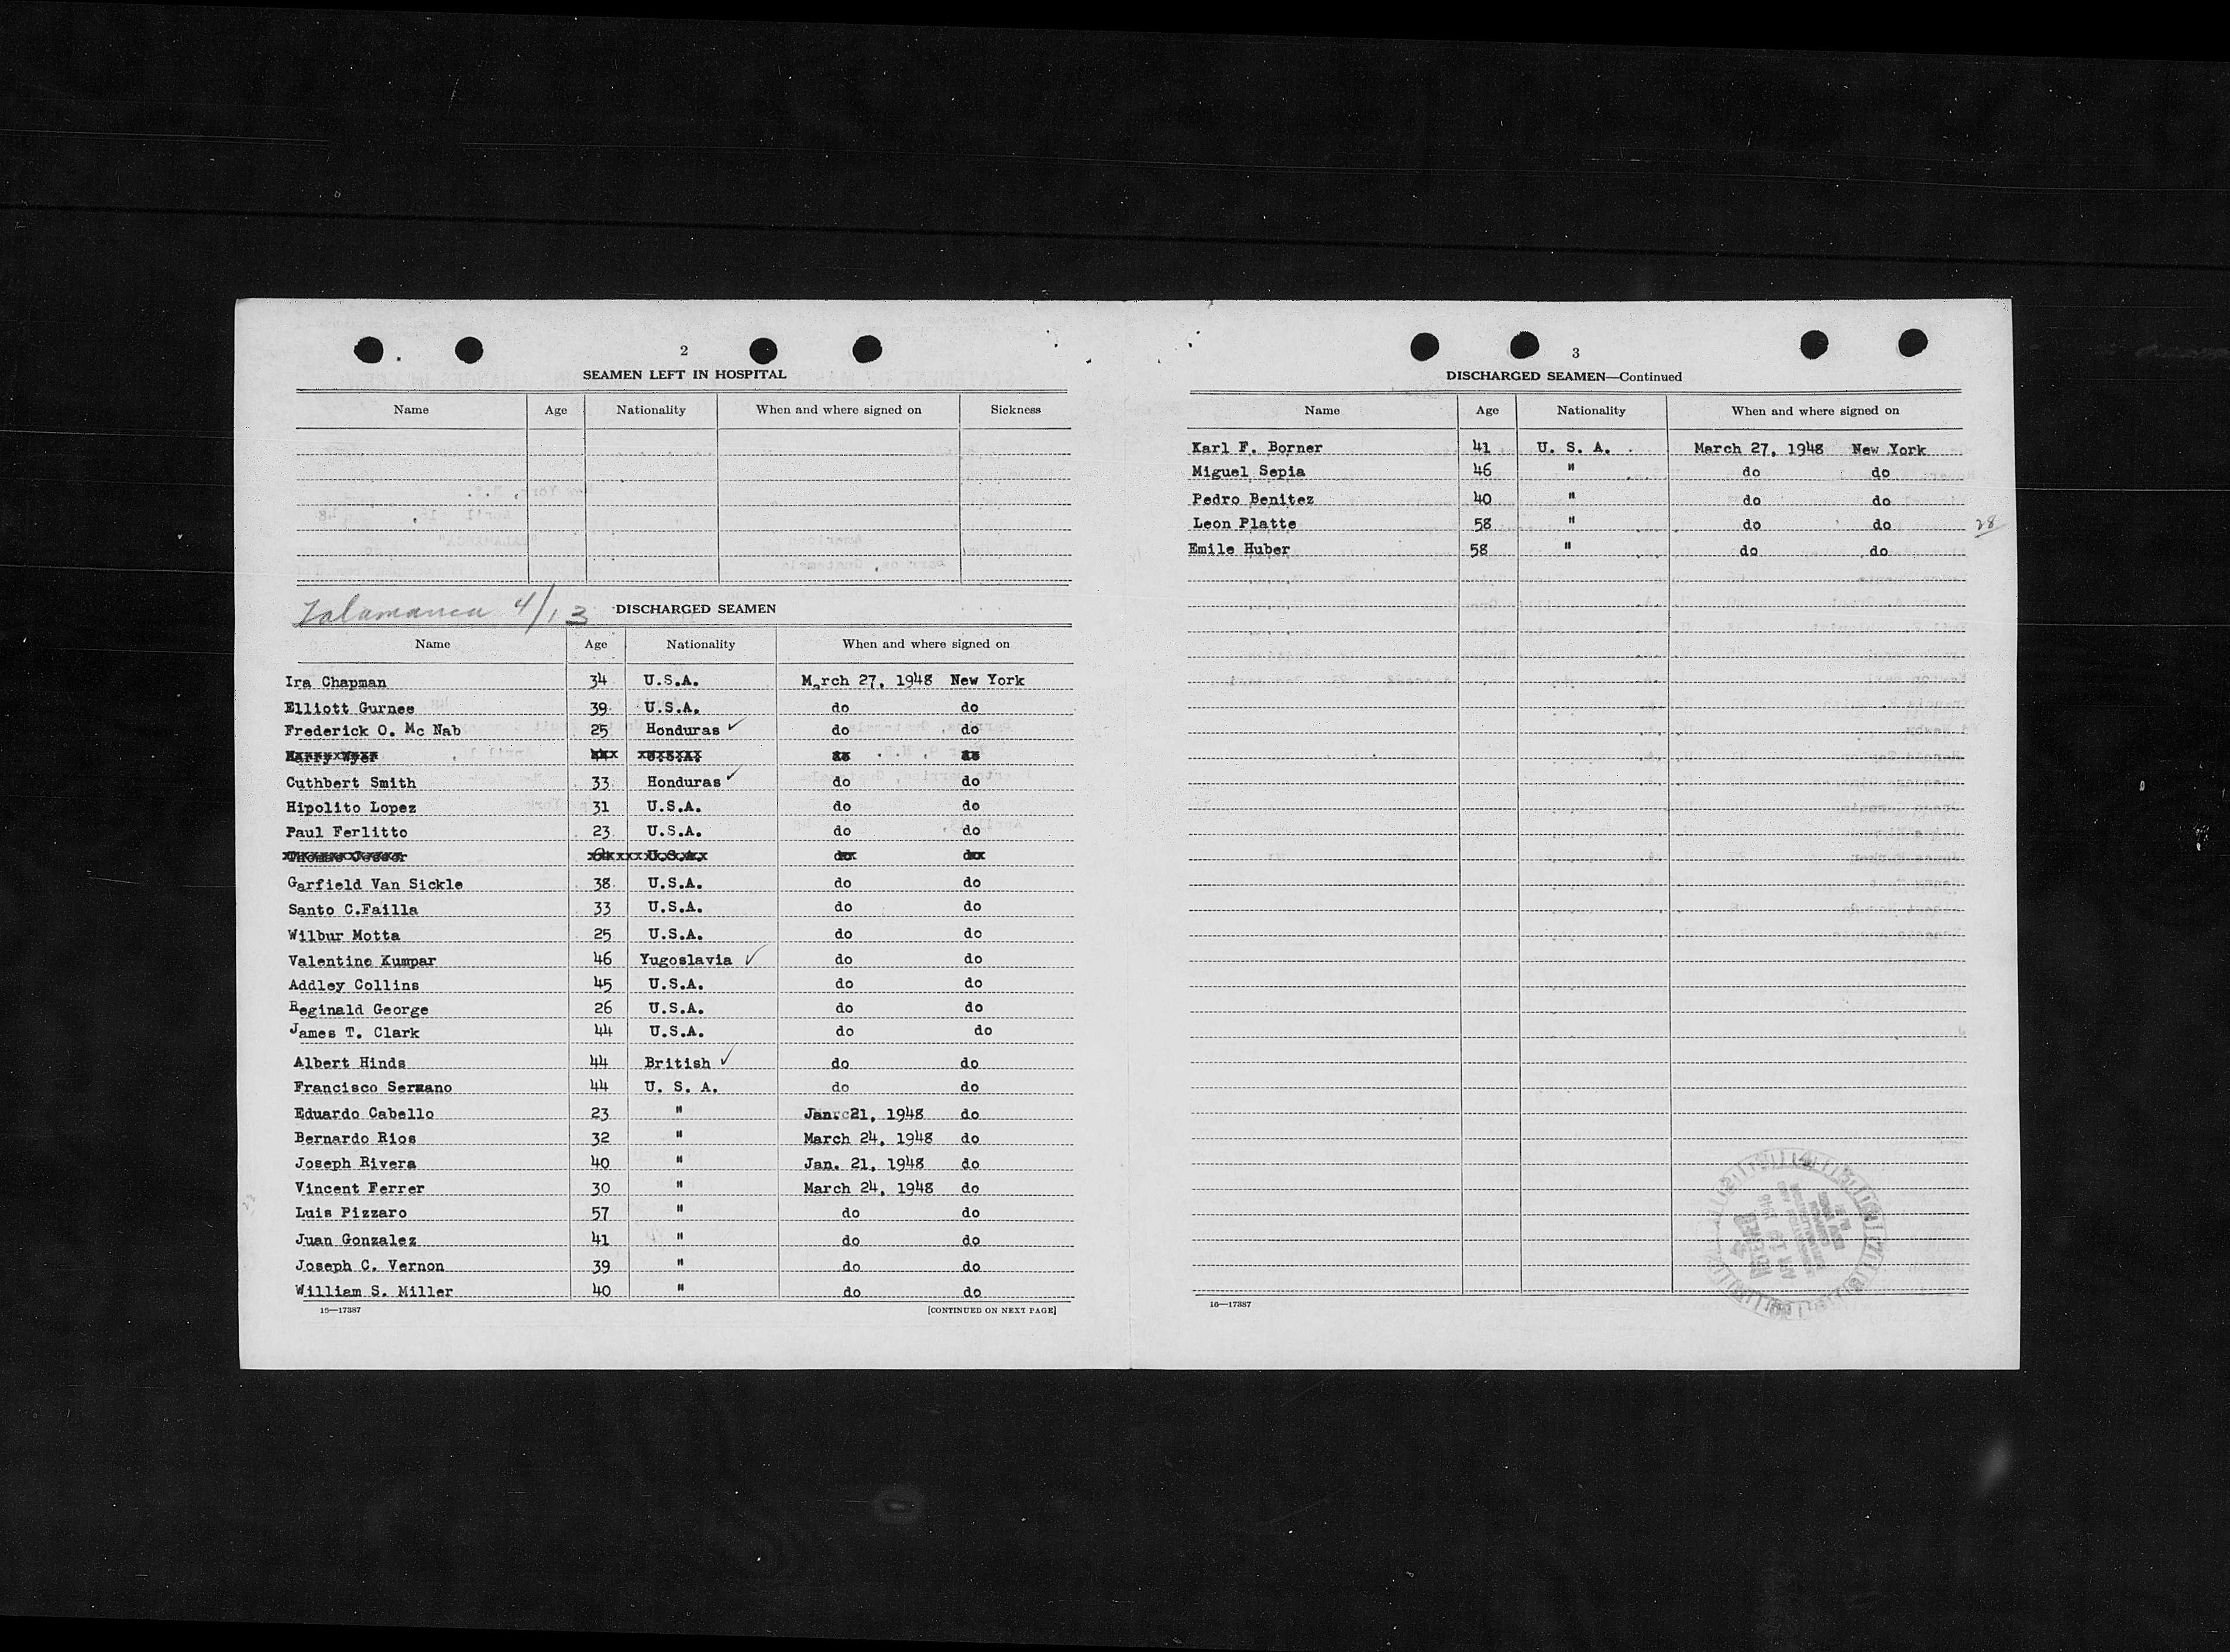 2
SEAMEN LEFT IN HOSPITAL
Name Age Nationality When and where signed on Sickness
Talamanca 4/13 DISCHARGED SEAMEN
Name Age Nationality When and where signed on
Ira Chapman 34 U.S.A. March 27, 1948 New York
Elliott Gurnee 39 U.S.A. do do
Frederick O. Mc Nab 25 Honduras ✓ do do
Harry Wyer U.S.A.
Cuthbert Smith 33 Honduras ✓ do do
Hipolito Lopez 31 U.S.A. do do
Paul Ferlitto 23 U.S.A. do do
Thomas U.S.A. do do
Garfield Van Sickle 38 U.S.A. do do
Santo C.Failla 33 U.S.A. do do
Wilbur Motta 25 U.S.A. do do
Valentine Kumpar 46 Yugoslavia ✓ do do
Addley Collins 45 U.S.A. do do
Reginald George 26 U.S.A. do do
James T. Clark 44 U.S.A. do do
Albert Hinds 44 British ✓ do do
Francisco Serrano 44 U. S. A. do do
Eduardo Cabello 23 " Jan. 21, 1948 do
Bernardo Rios 32 " March 24, 1948 do
Joseph Rivera 40 " Jan. 21, 1948 do
Vincent Ferrer 30 " March 24, 1948 do
Luis Pizzaro 57 " do do
Juan Gonzalez 41 " do do
Joseph C. Vernon 39 " do do
William S. Miller 40 " do do
16—17387 [CONTINUED ON NEXT PAGE]
3
DISCHARGED SEAMEN—Continued
Name Age Nationality When and where signed on
Karl F. Borner 41 U. S. A. March 27, 1948 New York
Miguel Sepia 46 " do do
Pedro Benitez 40 " do do
Leon Platte 58 " do do 28
Emile Huber 58 " do do
16—17387